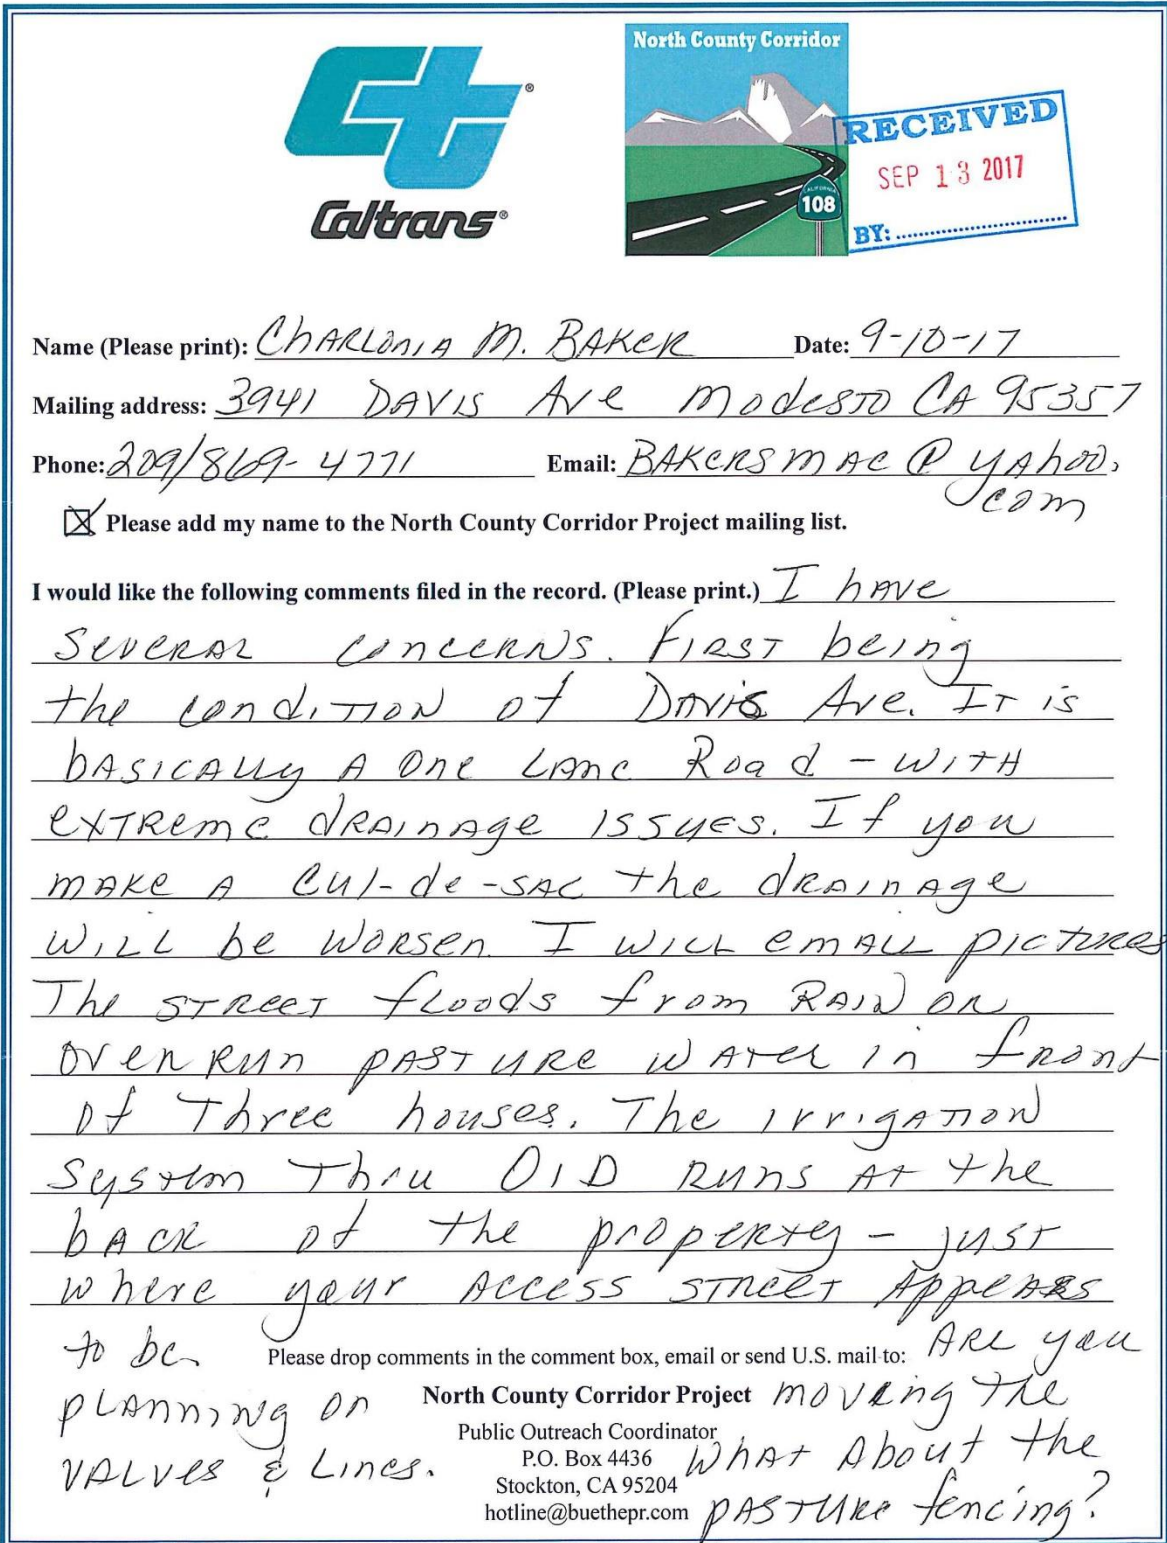 Ct®
Caltrans®
North County Corridor
CALIFORNIA
108
RECEIVED
SEP 13 2017
BY:
Name (Please print): ChARLONIA M. BAKeR Date: 9-10-17
Mailing address: 3941 DAVIS Ave ModesTO CA 95357
Phone: 209/869-4771 Email: BAKeRSMAC@yAhoo.
com
☒ Please add my name to the North County Corridor Project mailing list.
I would like the following comments filed in the record. (Please print.) I hAve
SeveRAL concerNs. FiRST being
the condiTION of DAVIS Ave. IT is
bASICALLy A One LAne Road - WITH
exTReme dRAinAge ISSUES. If you
mAKe A Cul-de-SAC the dRAinAge
WILL be WORSen. I WILL emAIL picTures
The STReeT fLoods from RAIN OR
OverRun pASTURe WATer in fRont
Of Three houses. The IrrigATION
System Thru OID Runs At the
bACK of the propeRty - jUST
where your Access STReeT AppeARs
to be. Please drop comments in the comment box, email or send U.S. mail to: ARe you
pLANNINg on North County Corridor Project moving The
VALVes & Lines. Public Outreach Coordinator
P.O. Box 4436 WhAt About the
Stockton, CA 95204
hotline@buethepr.com pASTURe fencing?